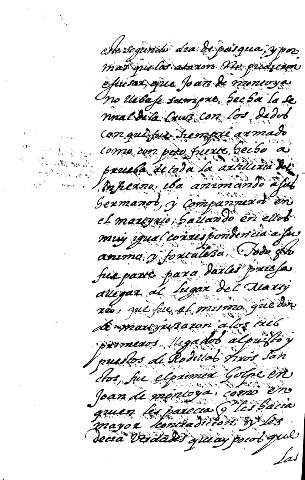 segundo dia de pasqua, y por
mas que los ataron no pudieron
escusar, que Joan de montoya
no llebase siempre hecha la se
ñal de la Cruz con los dedos
con que fue siempre armado
como con peto fuerte hecho a
prueba de toda la artilleria del
infierno, iba animando a sus
hermanos, y compañeros en
el martyrio, hallando en ellos
muy igual correspondencia a su
animo, y fortaleza. Todo esto
fue parte para darles priesa
a llegar al lugar del Marty
rio, que fue el mismo que don
de martyrizaron a los tres
primeros, llegados al puesto y
puestos de Rodillas San
ctos, fue el primer Golpe en
Joan de montoya, como en
quien les parecia y les hacia
mayor contradicion, y les
decia verdades que ay pocos que
las